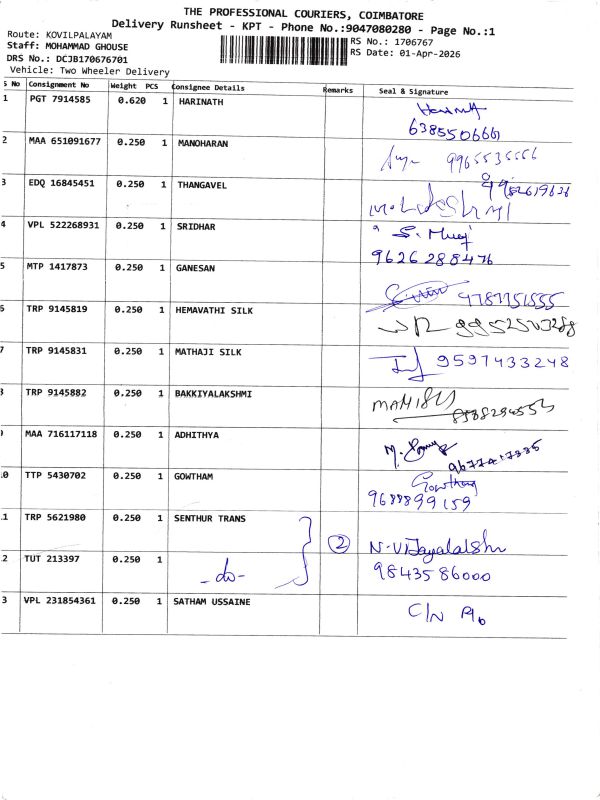 THE PROFESSIONAL COURIERS, COIMBATORE
Delivery Runsheet - KPT - Phone No.:9047080280 - Page No.:1
Route: KOVILPALAYAM
Staff: MOHAMMAD GHOUSE
DRS No.: DCJB170676701
Vehicle: Two Wheeler Delivery
RS No.: 1706767
RS Date: 01-Apr-2026
S No Consignment No Weight PCS Consignee Details Remarks Seal & Signature
1 PGT 7914585 0.620 1 HARINATH
6385506661
2 MAA 651091677 0.250 1 MANOHARAN
3 EDQ 16845451 0.250 1 THANGAVEL
4 VPL 522268931 0.250 1 SRIDHAR
9626288476
5 MTP 1417873 0.250 1 GANESAN
6 TRP 9145819 0.250 1 HEMAVATHI SILK
7 TRP 9145831 0.250 1 MATHAJI SILK 9597433248
8 TRP 9145882 0.250 1 BAKKIYALAKSHMI
9 MAA 716117118 0.250 1 ADHITHYA
0 TTP 5430702 0.250 1 GOWTHAM Gowtham
9688899159
.1 TRP 5621980 0.250 1 SENTHUR TRANS 2 N-Vijayalalshmi
.2 TUT 213397 0.250 1 -do- 9843586000
3 VPL 231854361 0.250 1 SATHAM USSAINE C/N